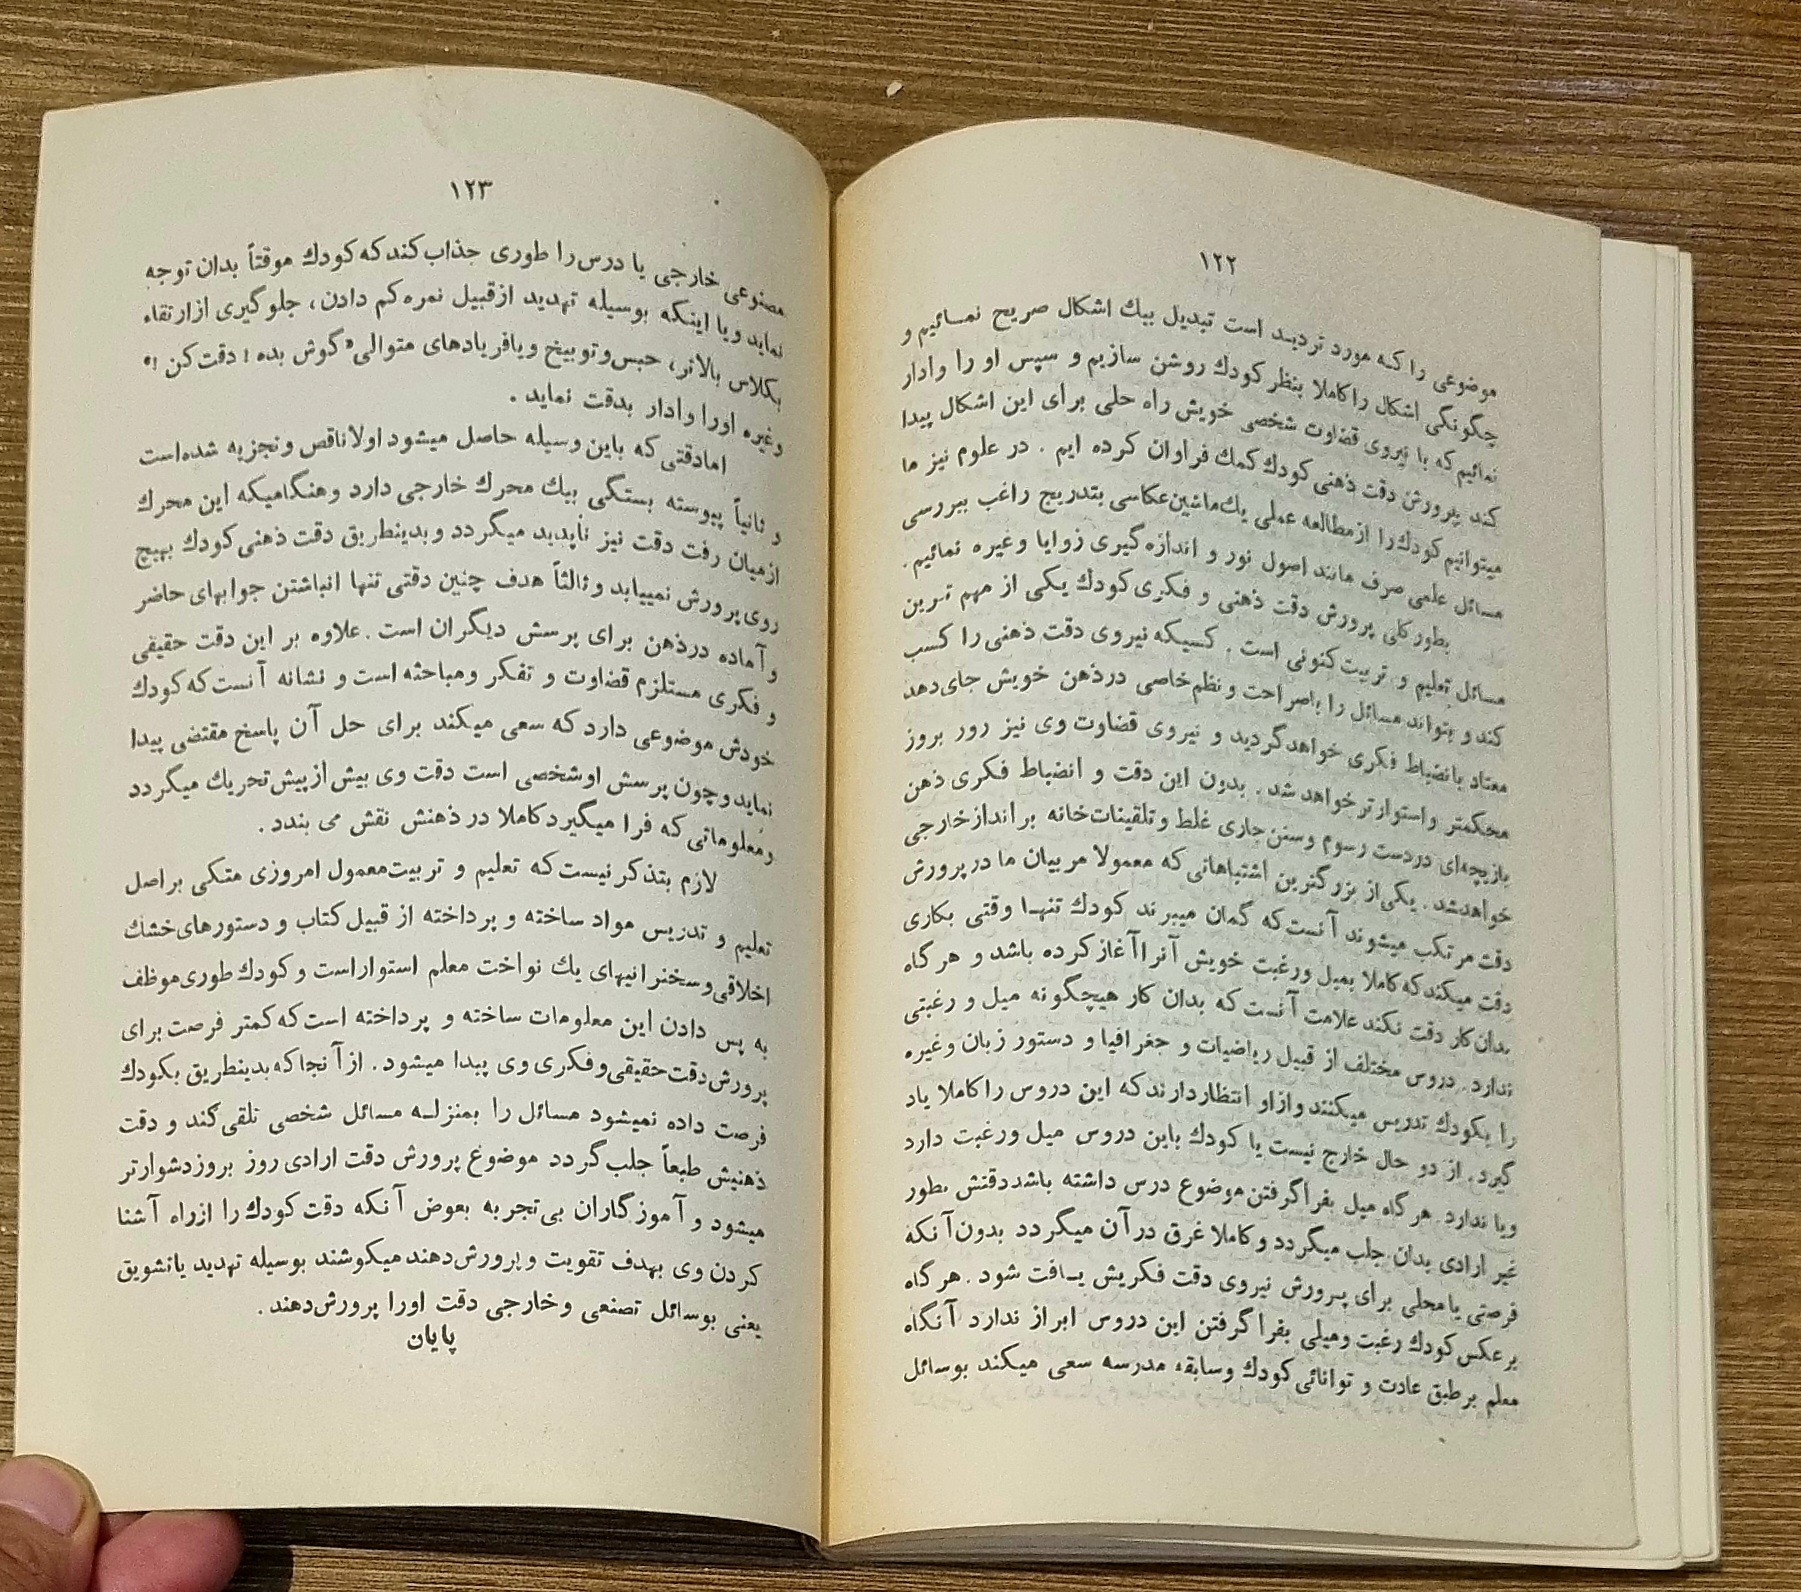 ۱۲۲
موضوعی را که مورد تردید است تبدیل بیك اشکال صریح نمائیم و
چگونگی اشکال را کاملا بنظر کودك روشن سازیم و سپس او را وادار
نمائیم که با نیروی قضاوت شخصی خویش راه حلی برای این اشکال پیدا
کند پرورش دقت ذهنی کودك کمك فراوان کرده ایم . در علوم نیز ما
میتوانیم کودك را از مطالعه عملی یك ماشین عکاسی بتدریج راغب ببررسی
مسائل علمی صرف مانند اصول نور و اندازه گیری زوایا و غیره نمائیم.
بطور کلی پرورش دقت ذهنی و فکری کودك یکی از مهم ترین
مسائل تعلیم و تربیت کنونی است . کسیکه نیروی دقت ذهنی را کسب
کند و بتواند مسائل را باصراحت و نظم خاصی در ذهن خویش جای دهد
معتاد بانضباط فکری خواهد گردید و نیروی قضاوت وی نیز رور بروز
محکمتر و استوارتر خواهد شد . بدون این دقت و انضباط فکری ذهن
بازیچه‌ای در دست رسوم و سنن جاری غلط و تلقینات خانه برانداز خارجی
خواهد شد . یکی از بزرگترین اشتباهاتی که معمولا مربیان ما در پرورش
دقت مرتکب میشوند آنست که گمان میبرند کودك تنها وقتی بکاری
دقت میکند که کاملا بمیل ورغبت خویش آنرا آغاز کرده باشد و هر گاه
بدان کار دقت نکند علامت آنست که بدان کار هیچگونه میل و رغبتی
ندارد . دروس مختلف از قبیل ریاضیات و جغرافیا و دستور زبان وغیره
را بکودك تدریس میکنند و ازاو انتظار دارند که این دروس را کاملا یاد
گیرد . از دو حال خارج نیست یا کودك باین دروس میل ورغبت دارد
ویا ندارد . هر گاه میل بفرا گرفتن موضوع درس داشته باشد دقتش بطور
غیر ارادی بدان جلب میگردد و کاملا غرق در آن میگردد بدون آنکه
فرصتی یا محلی برای پرورش نیروی دقت فکریش یافت شود . هر گاه
برعکس کودك رغبت ومیلی بفرا گرفتن این دروس ابراز ندارد آنگاه
معلم برطبق عادت و توانائی کودك وسابقه مدرسه سعی میکند بوسائل
۱۲۳
مصنوعی خارجی یا درس را طوری جذاب کند که کودك موقتاً بدان توجه
نماید ویا اینکه بوسیله تهدید از قبیل نمره کم دادن ، جلوگیری از ارتقاء
بکلاس بالاتر ، حبس و توبیخ و یافریادهای متوالی «گوش بده ! دقت کن !»
وغیره اورا وادار بدقت نماید .
امادقتی که باین وسیله حاصل میشود اولا ناقص و تجزیه شده است
و ثانیاً پیوسته بستگی بیك محرك خارجی دارد و هنگامیکه این محرك
ازمیان رفت دقت نیز ناپدید میگردد و بدینطریق دقت ذهنی کودك بهیچ
روی پرورش نمییابد و ثالثاً هدف چنین دقتی تنها انباشتن جوابهای حاضر
و آماده درذهن برای پرسش دیگران است . علاوه بر این دقت حقیقی
و فکری مستلزم قضاوت و تفکر ومباحثه است و نشانه آنست که کودك
خودش موضوعی دارد که سعی میکند برای حل آن پاسخ مقتضی پیدا
نماید و چون پرسش او شخصی است دقت وی بیش از پیش تحریك میگردد
ومعلوماتی که فرا میگیرد کاملا در ذهنش نقش می بندد .
لازم بتذکر نیست که تعلیم و تربیت معمول امروزی متکی بر اصل
تعلیم و تدریس مواد ساخته و پرداخته از قبیل کتاب و دستورهای خشك
اخلاقی و سخنرانیهای یك نواخت معلم استوار است و کودك طوری موظف
به پس دادن این معلومات ساخته و پرداخته است که کمتر فرصت برای
پرورش دقت حقیقی و فکری وی پیدا میشود . از آنجا که بدینطریق بکودك
فرصت داده نمیشود مسائل را بمنزله مسائل شخصی تلقی کند و دقت
ذهنیش طبعاً جلب گردد موضوع پرورش دقت ارادی روز بروز دشوارتر
میشود و آموزگاران بی تجربه بعوض آنکه دقت کودك را ازراه آشنا
کردن وی بهدف تقویت و پرورش دهند میکوشند بوسیله تهدید یا تشویق
یعنی بوسائل تصنعی و خارجی دقت اورا پرورش دهند .
پایان